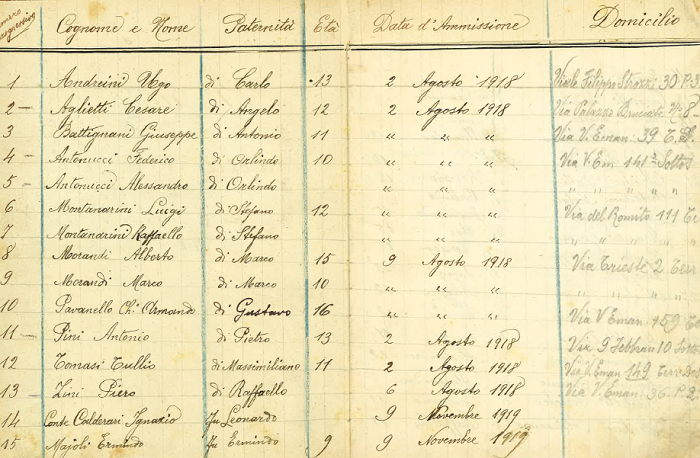 Numero progressivo Cognome e Nome Paternità Età Data d'Ammissione Domicilio
1 Andreini Ugo di Carlo 13 2 Agosto 1918 Viale Filippo Strozzi 30 P. 3
2 — Aglietti Cesare di Angelo 12 2 Agosto 1918 Via Palazzo Bruciato 8
3 Battignani Giuseppe di Antonio 11 " " " Via V. Eman. 39 T.
4 — Antonucci Federico di Orlindo 10 " " " Via V. Em 141 Sottos
5 — Antonucci Alessandro di Orlindo " " " " " " "
6 Montanarini Luigi di Stefano 12 " " " Via del Romito 111 Ter
7 Montanarini Raffaello di Stefano " " " " " " "
8 Morandi Alberto di Marco 15 9 Agosto 1918 Via Trieste 2 Terr
9 Morandi Marco di Marco 10 " " " " " " "
10 Pavanello Ch. Armando di Gustavo 16 " " " Via V Eman. 159
11 — Pini Antonio di Pietro 13 2 Agosto 1918 Via 9 Febbraio 10 Sottos
12 Tomasi Tullio di Massimiliano 11 2 Agosto 1918 Via V. Eman 149 Terr.
13 — Zini Piero di Raffaello 6 Agosto 1918 Via V. Eman. 36. P. 2
14 Conte Calderari Ignazio fu Leonardo 9 Novembre 1919
15 Majoli Ermindo fu Ermindo 9 9 Novembre 1919